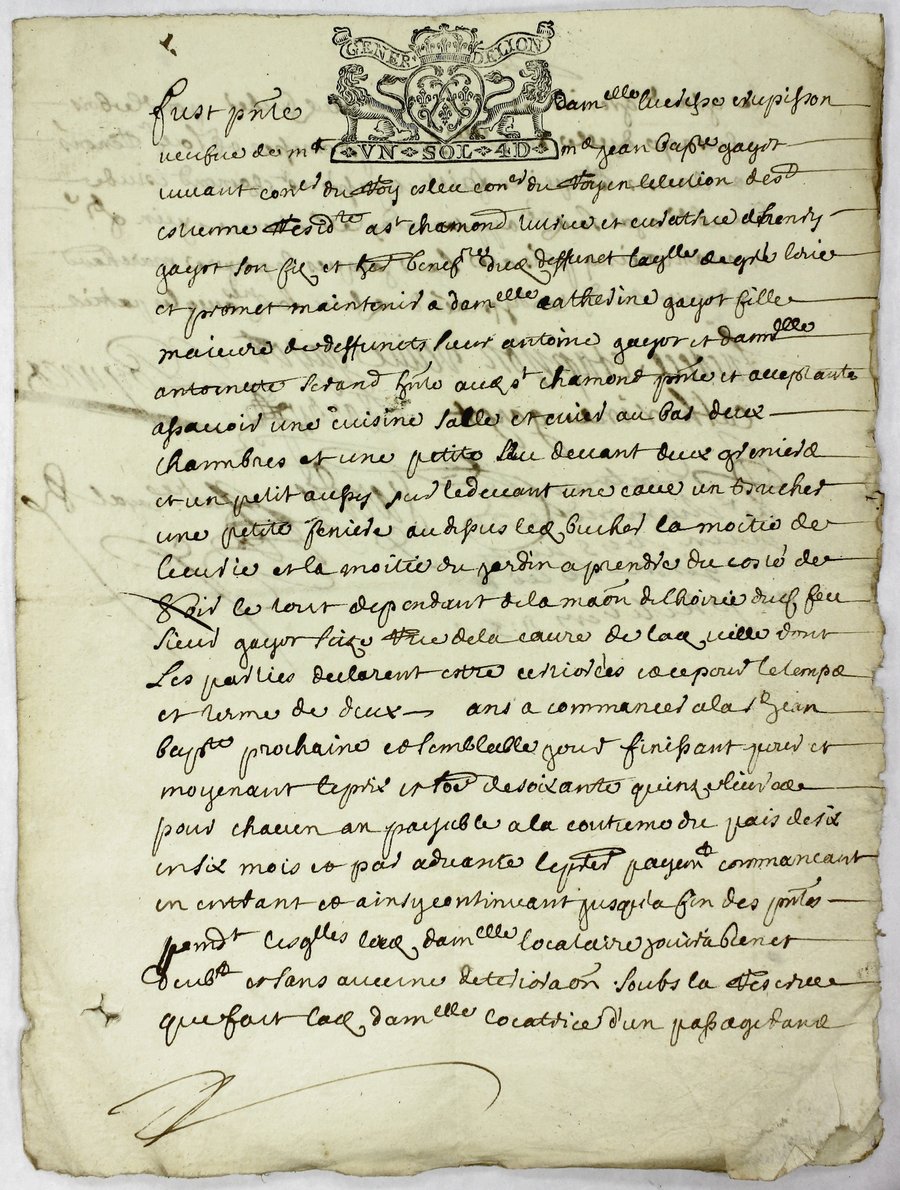 GENER DE LION
VN SOL 4D
fust pnte damelle lucresse crupisson
veufve de mr me jean bapte gayot
vivant coner du Roy esleu coner du Roy en lelection de st
estienne Residte a st chamond tutrice et curatrice de henry
gayot son fix et her benefre dud deffunct laqlle de gre loue
et promet maintenir a damelle catherine gayot fille
maieure de deffuncts sieur antoine gayot et damlle
antoinette serand hnte aud st chamond pnte et acceptante
assavoir une cuisine salle et evier au bas deux
chambres et une petite sur devant deux greniers
et un petit aussy sur le devant une cave un bucher
une petite feniere au dessus led bucher la moitie de
lecurie et la moitie du jardin a prendre du coste de
soir le tout dependant de la maon de lhoirie dud feu
sieur gayot size Rue de la caure de lad ville dont
Les parties declarent estre certiorées et ce pour le temps
et terme de deux ans a commancer a la st Jean
bapte prochaine et semblable jour finissant jour et
moyenant le prix et so͞e de soixante quinze livres
pour chacun an payable a la coutume du pais de six
en six mois et par advante le pter payemt commancant
en entrant et ainsy continuant jusqua fin des pntes
pendt lesqlles lad damelle locataire jouira bien et
deubt et sans aucune deterioraon soubs la Reserve
que fait lad damelle locatrice d'un passage dans